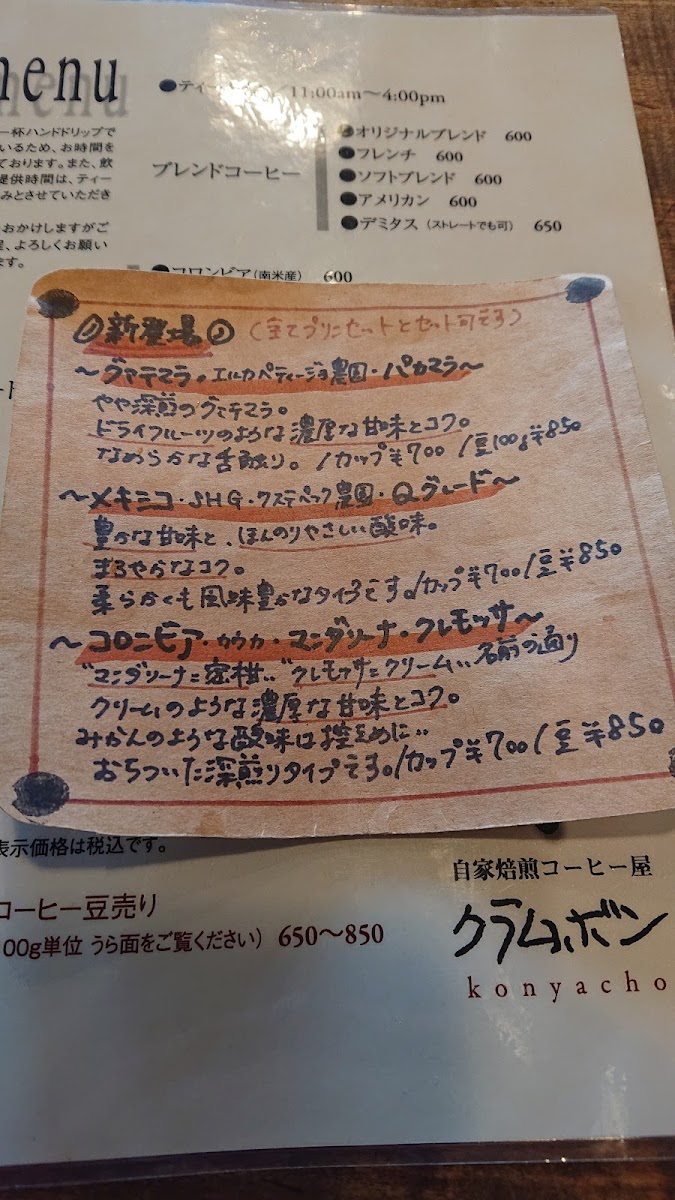 menu
●ティー /11:00am～4:00pm
一杯ハンドドリップで
いるため、お時間を
ております。また、飲
提供時間は、ティー
みとさせていただき
おかけしますがご
程、よろしくお願い
ます。
ブレンドコーヒー
●オリジナルブレンド 600
●フレンチ 600
●ソフトブレンド 600
●アメリカン 600
●デミタス（ストレートでも可） 650
●コロンビア（南米産） 600
新登場（全てプリンセットとセット可です）
～グァテマラ・エルカペティージョ農園・パカマラ～
やや深煎のグァテマラ。
ドライフルーツのような濃厚な甘味とコク。
なめらかな舌触り。/カップ¥700/豆100g¥850
～メキシコ・SHG・クステペック農園・Qグレード～
豊かな甘味と、ほんのりやさしい酸味。
まろやかなコク。
柔らかくも風味豊かなタイプです。/カップ¥700/豆¥850
～コロンビア・カウカ・マンダリーナ・クレモッサ～
"マンダリーナ=蜜柑.."クレモッサ=クリーム..名前の通り
クリームのような濃厚な甘味とコク。
みかんのような酸味は控えめに..
おちついた深煎りタイプです。/カップ¥700/豆¥850
表示価格は税込です。
コーヒー豆売り
00g単位 うら面をご覧ください） 650～850
自家焙煎コーヒー屋
クラムボン
konyacho